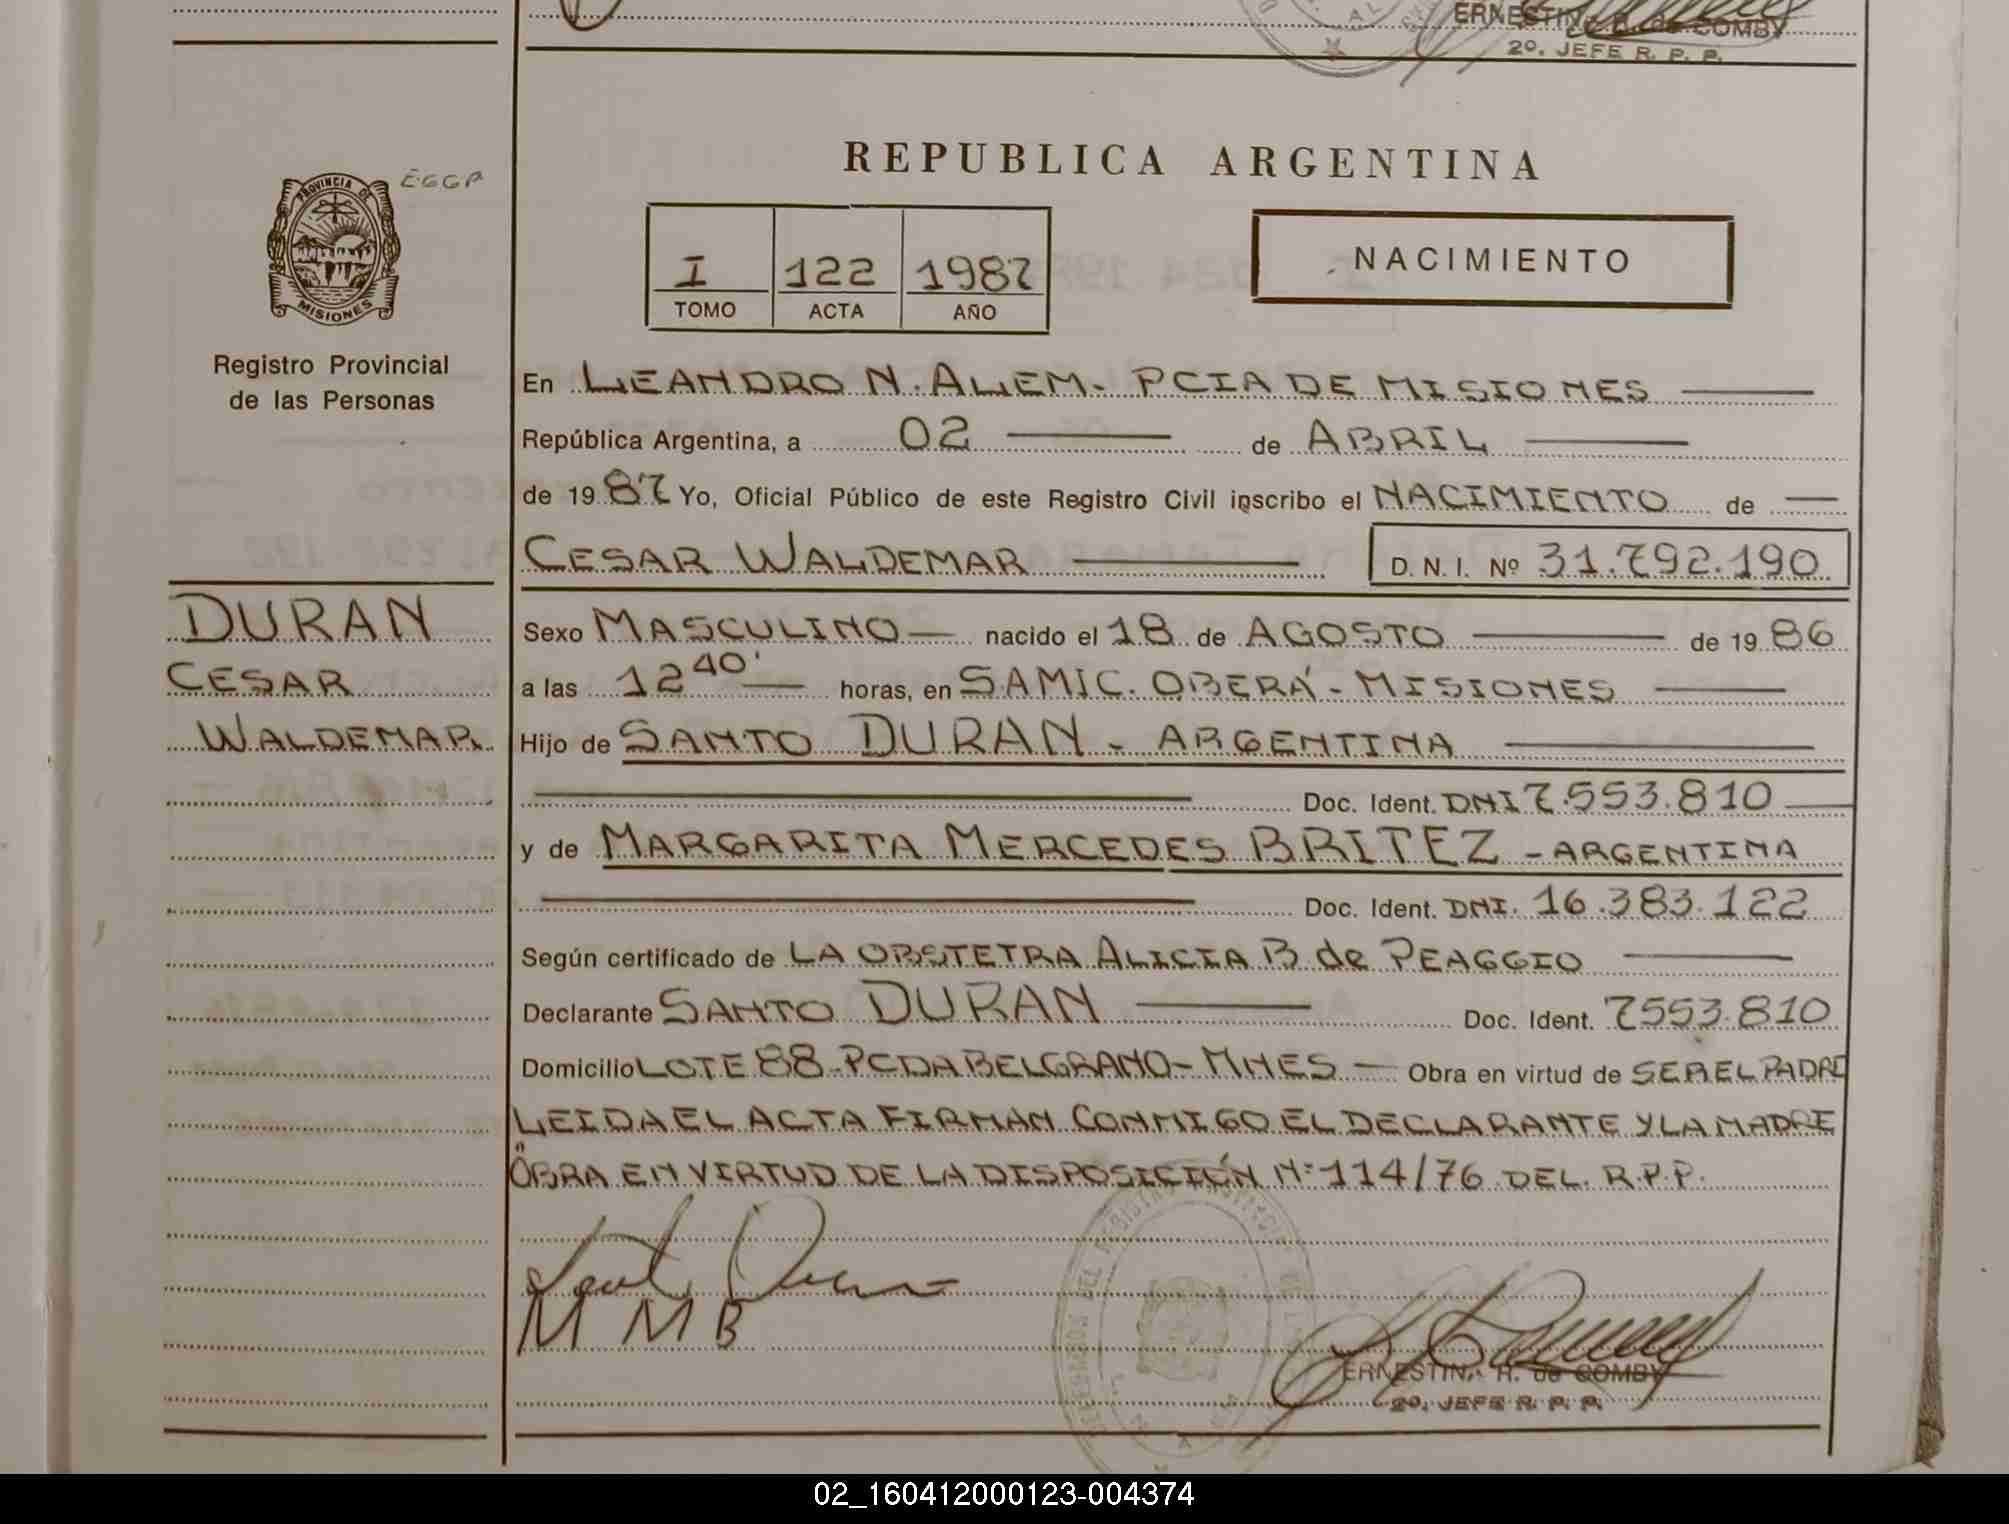 ERNESTINA R. de COMBY
2º. JEFE R. P. P.
EGGP
PROVINCIA DE
MISIONES
Registro Provincial
de las Personas
DURAN
CESAR
WALDEMAR
REPUBLICA ARGENTINA
I 122 1987
TOMO ACTA AÑO
NACIMIENTO
En LEANDRO N. ALEM - PCIA DE MISIONES
República Argentina, a 02 de ABRIL
de 1987 Yo, Oficial Público de este Registro Civil inscribo el NACIMIENTO de
CESAR WALDEMAR D. N. I. Nº 31.792.190
Sexo MASCULINO nacido el 18 de AGOSTO de 1986
a las 12 40' horas, en SAMIC. OBERÁ - MISIONES
Hijo de SANTO DURAN - ARGENTINA
Doc. Ident. DNI 7.553.810
y de MARGARITA MERCEDES BRITEZ - ARGENTINA
Doc. Ident. DNI. 16.383.122
Según certificado de LA OBSTETRA ALICIA B de PEAGGIO
Declarante SANTO DURAN Doc. Ident. 7553.810
Domicilio LOTE 88 - PCDA BELGRANO - MNES - Obra en virtud de SER EL PADRE
LEIDA EL ACTA FIRMAN CONMIGO EL DECLARANTE Y LA MADRE
OBRA EN VIRTUD DE LA DISPOSICIÓN Nº 114/76 DEL R.P.P.
Santo Duran
M M B
ERNESTINA R. de COMBY
2º. JEFE R. P. P.
02_160412000123-004374